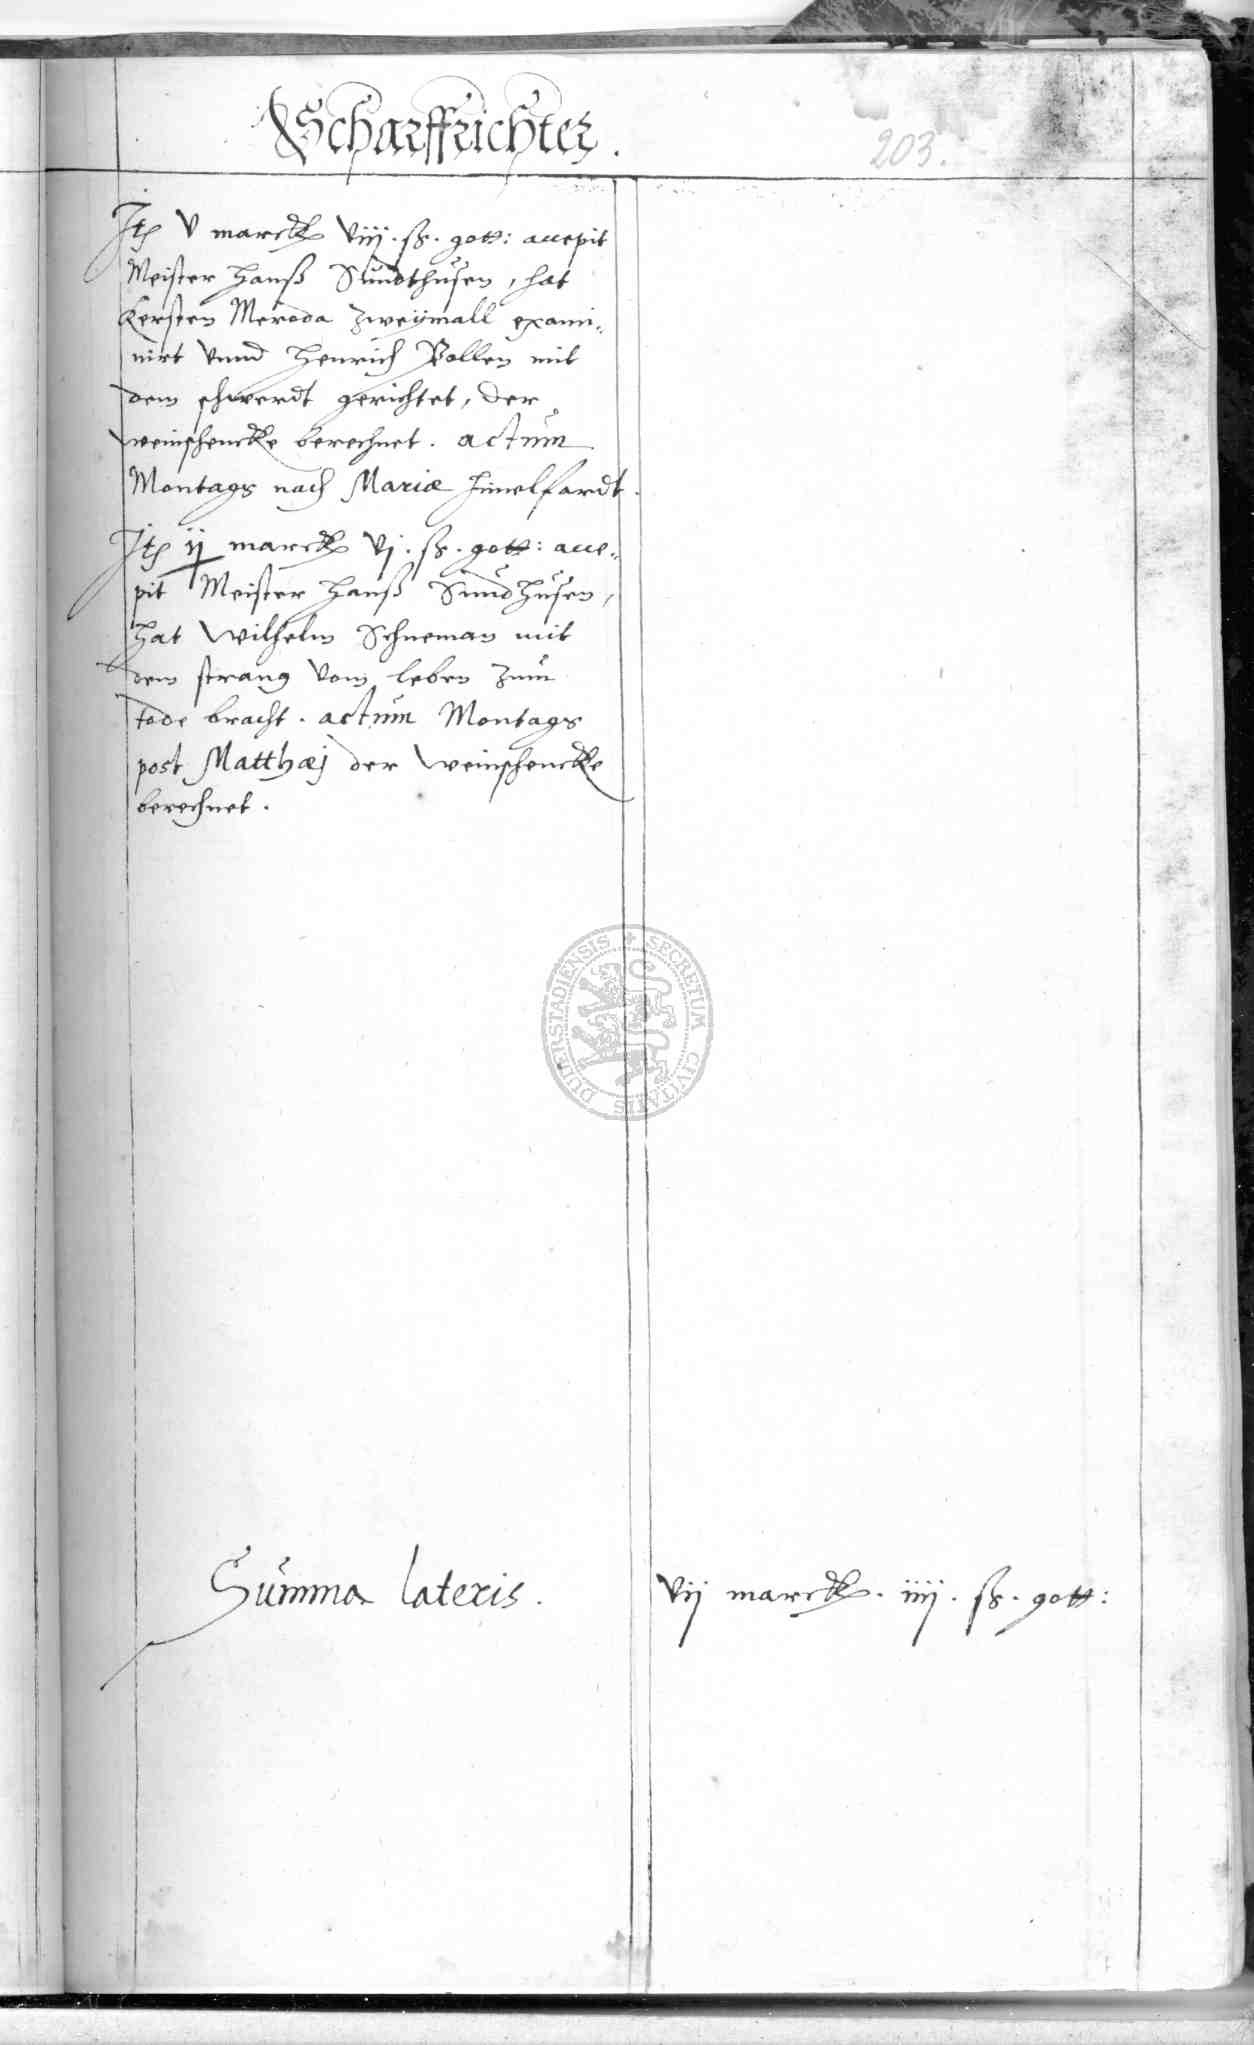 Scharffrichter.
203.
Itē v marck viij. ß. gott: accepit
Meister Hanß Sundthusen, hat
Kersten Meroda zweymall exami-
nirt vnnd Henrich Bollen mit
dem schwerdt gerichtet, der
weinschencke berechnet. actum
Montags nach Mariæ himelfardt.
Itē ij marck vj. ß. gott: acce-
pit Meister Hanß Sundhusen,
hat Wilhelm Schneman mit
dem strang vom leben zum
tode bracht. actum Montags
post Matthæj der weinschencke
berechnet.
SECRETUM CIVITATIS DUDERSTADIENSIS
Summa lateris. vij marck. iiij. ß. gott: